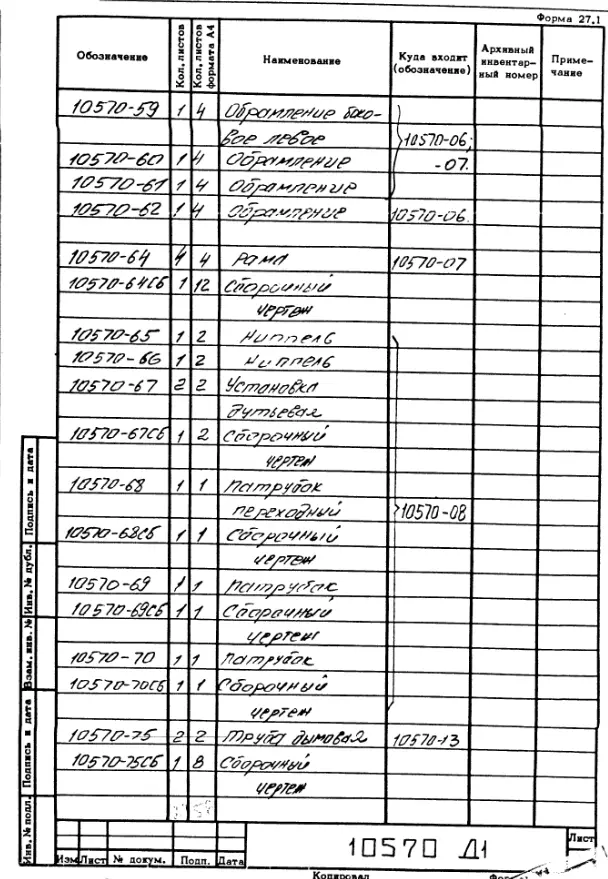 Форма 27.1
Обозначение Кол. листов Кол. листов формата А4 Наименование Куда входит (обозначение) Архивный инвентар-ный номер Приме-чание
10570-59 1 4 Обрамление боко-
вое левое 10570-06;
10570-60 1 4 Обрамление -07.
10570-61 1 4 Обрамление
10570-62 1 4 Обрамление 10570-06.
10570-64 4 4 Рама 10570-07
10570-64СБ 1 12 Сборочный
чертеж
10570-65 1 2 Ниппель
10570-66 1 2 Ниппель
10570-67 2 2 Установка
дутьевая
10570-67СБ 1 2 Сборочный
чертеж
10570-68 1 1 Патрубок
переходный 10570-08
10570-68СБ 1 1 Сборочный
чертеж
10570-69 1 1 Патрубок
10570-69СБ 1 1 Сборочный
чертеж
10570-70 1 1 Патрубок
10570-70СБ 1 1 Сборочный
чертеж
10570-75 2 2 Труба дымовая 10570-13
10570-75СБ 1 8 Сборочный
чертеж
Подпись и дата
Инв. № дубл.
Взам. инв. №
Подпись и дата
Инв. № подл.
10570 Д1
Лист
Изм Лист № докум. Подп. Дата
Копировал